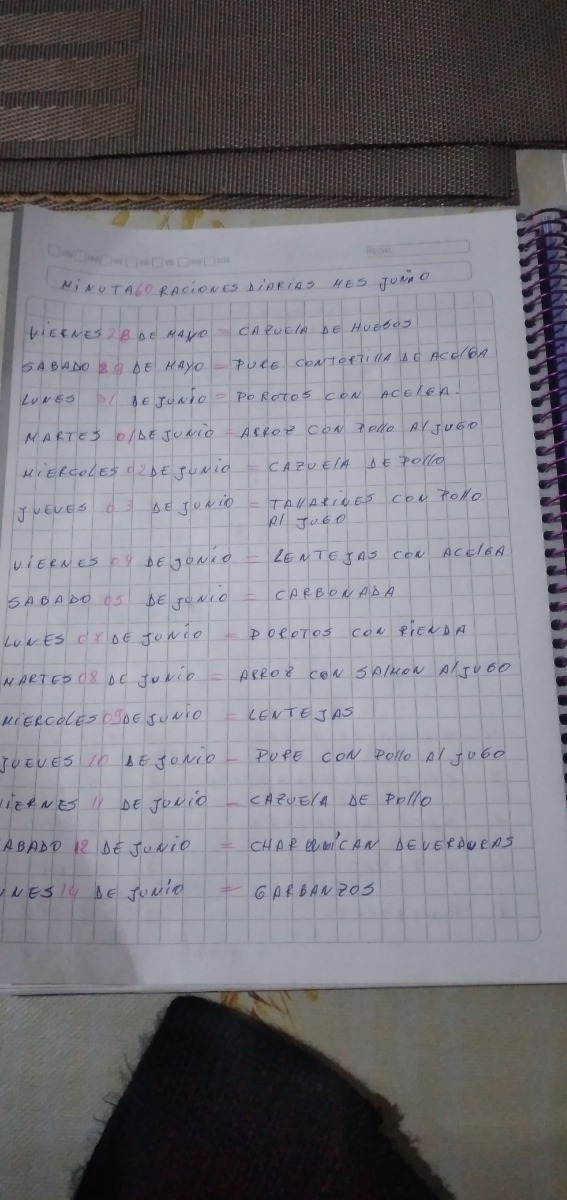 MINUTA 60 RACIONES DIARIAS MES JUNIO
VIERNES 28 DE MAYO = CAZUELA DE HUESOS
SABADO 29 DE MAYO = PURE CON TORTILLA DE ACELGA
LUNES 31 DE JUNIO = POROTOS CON ACELGA.
MARTES 01 DE JUNIO = ARROZ CON POLLO AL JUGO
MIERCOLES 02 DE JUNIO = CAZUELA DE POLLO
JUEVES 03 DE JUNIO = TALLARINES CON POLLO
AL JUGO
VIERNES 04 DE JUNIO = LENTEJAS CON ACELGA
SABADO 05 DE JUNIO = CARBONADA
LUNES 07 DE JUNIO = POROTOS CON RIENDA
MARTES 08 DE JUNIO = ARROZ CON SALMON AL JUGO
MIERCOLES 09 DE JUNIO = LENTEJAS
JUEVES 10 DE JUNIO - PURE CON POLLO AL JUGO
IERNES 11 DE JUNIO - CAZUELA DE POLLO
ABADO 12 DE JUNIO = CHARQUICAN DE VERDURAS
UNES 14 DE JUNIO = GARBANZOS